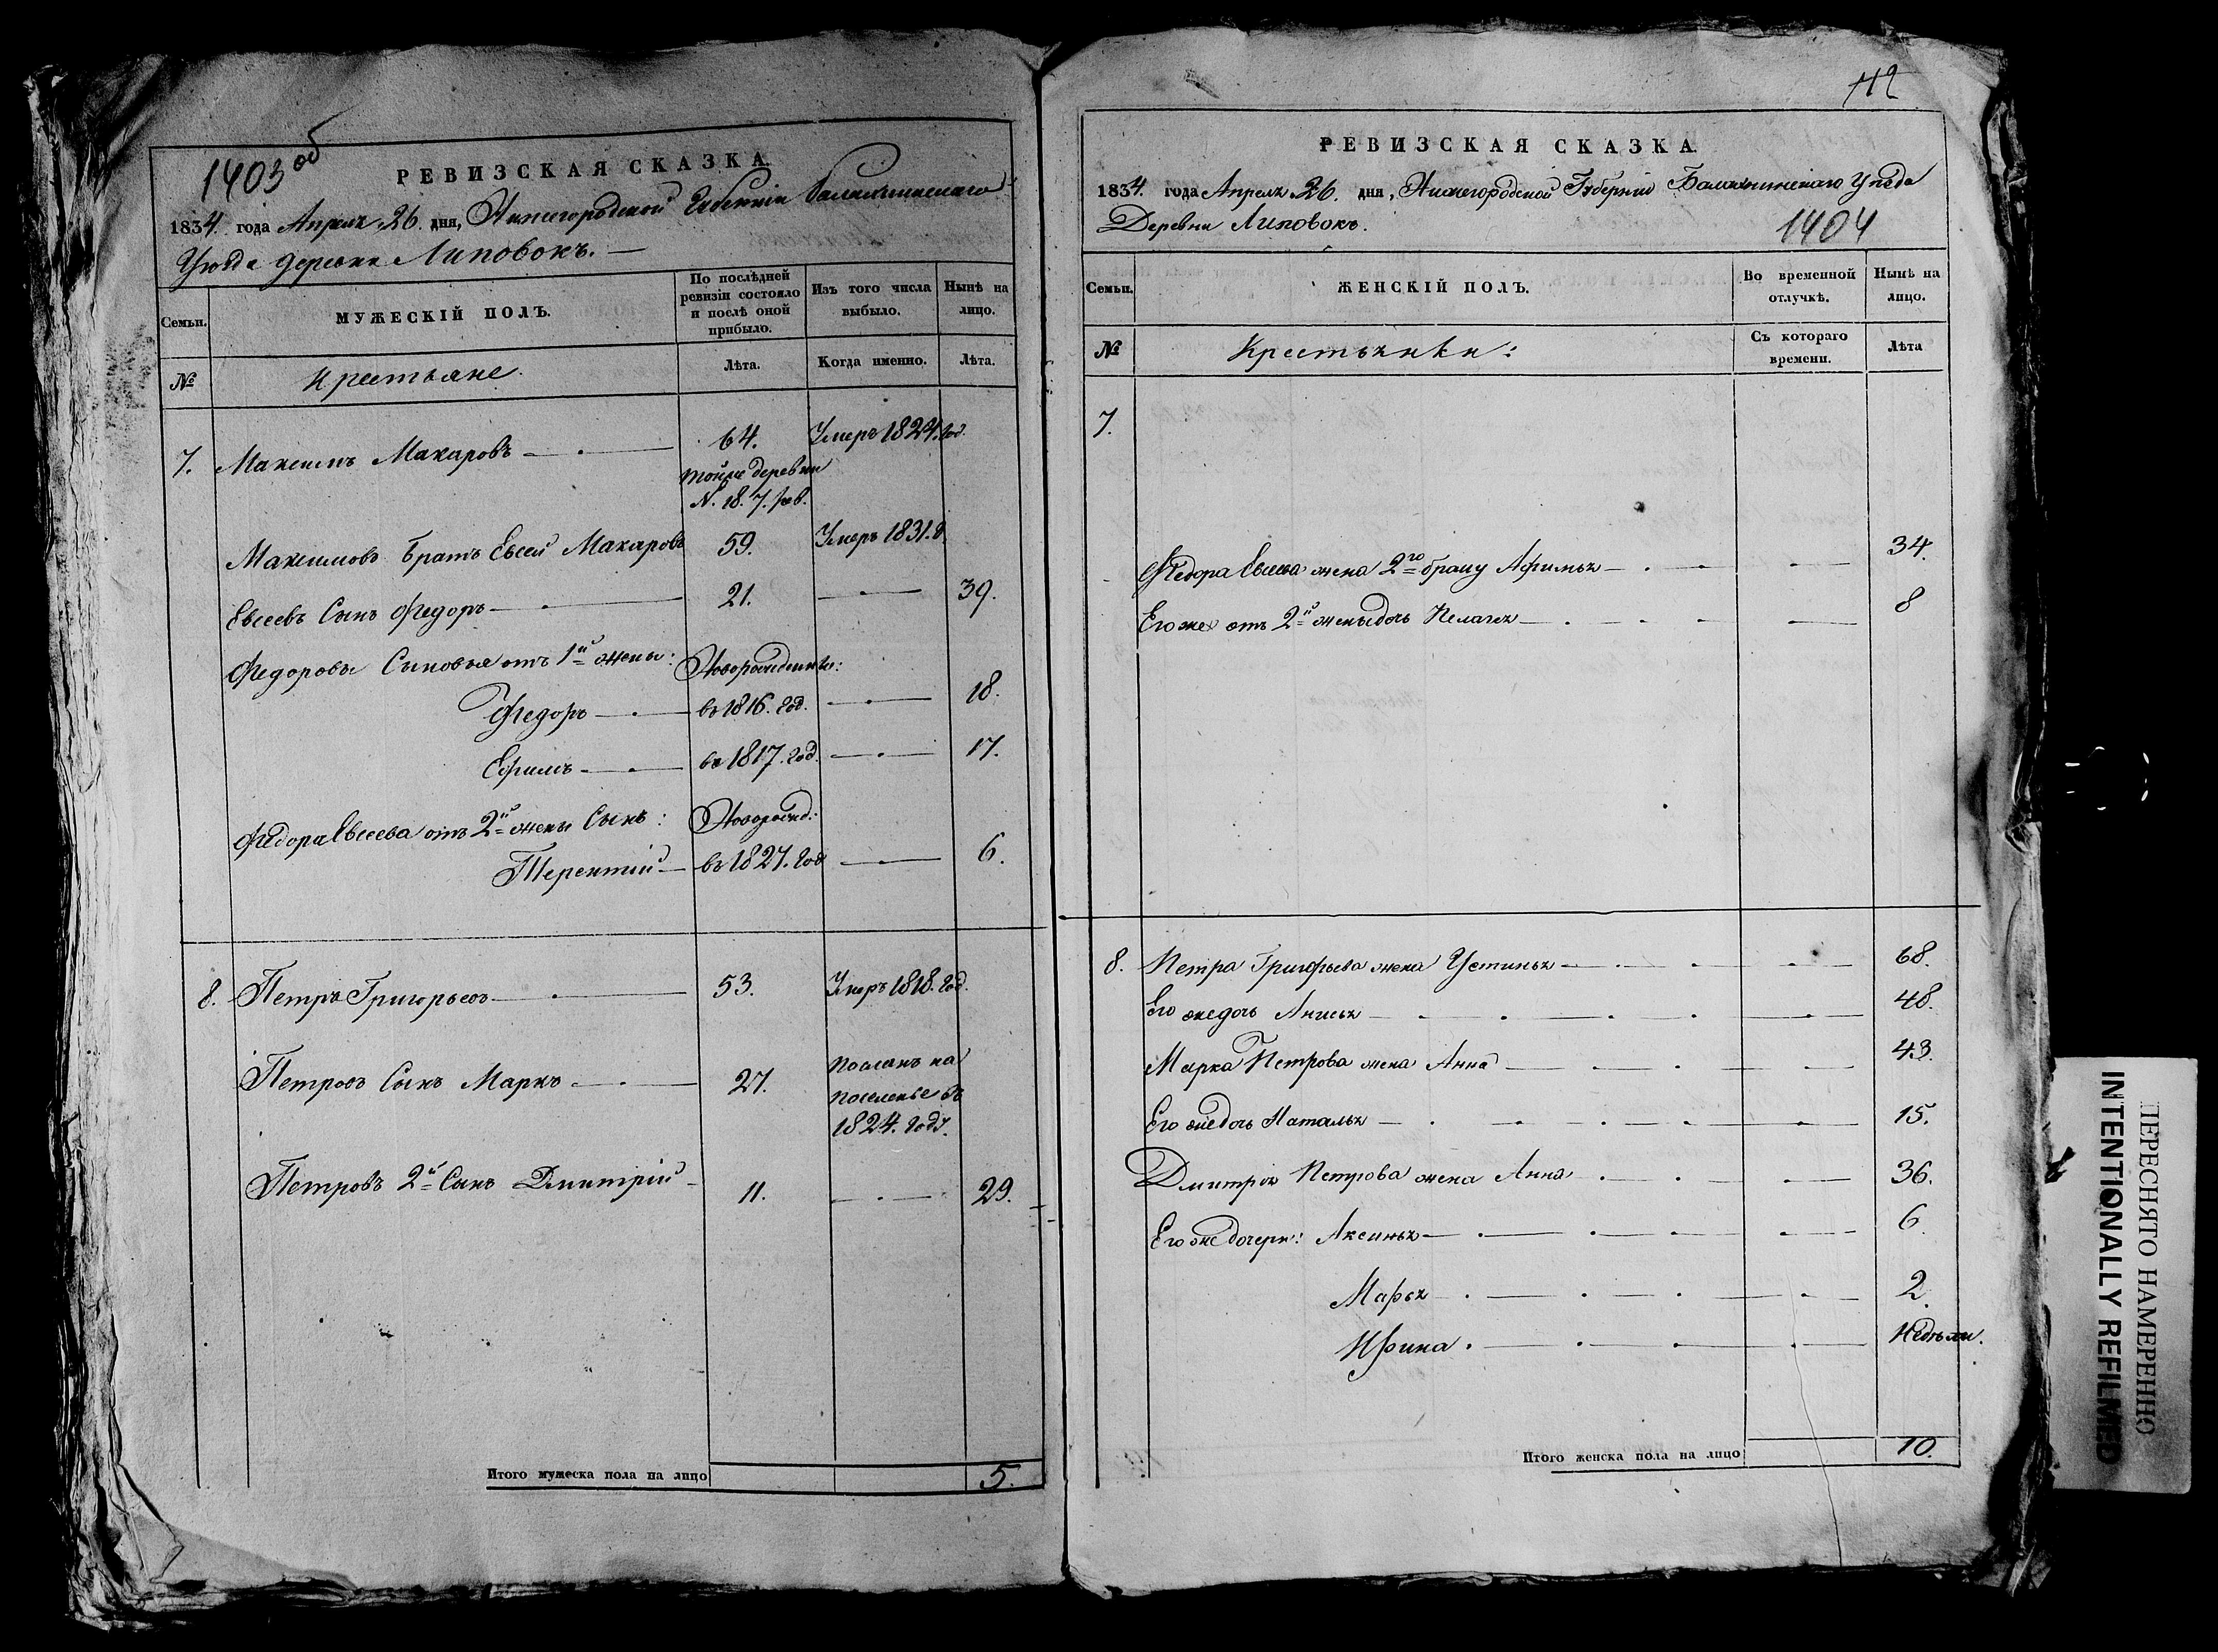 1403 об
РЕВИЗСКАЯ СКАЗКА
1834. года Апреля 26. дня, Нижегородской Губерніи Балахнинскаго
Уезда деревни Липовокъ. —
Семьи.
МУЖЕСКІЙ ПОЛЪ.
По послѣдней ревизіи состояло и послѣ оной прибыло.
Изъ того числа выбыло.
Нынѣ на лицо.
№
Крестьяне.
Лѣта.
Когда именно.
Лѣта.
7. Максимъ Макаровъ — 64. Умеръ 1824. год.
тойже деревни
N. 18. 7. рев.
Максимовъ братъ Евсей Макаровъ 59. Умеръ 1831. г.
Евсеевъ Сынъ Федоръ — 21. — 39.
Федоровы Сыновья отъ 1й жены: Новорожденные:
Федоръ — въ 1816. год. — 18.
Ефимъ — въ 1817. год. — 17.
Федора Евсеева отъ 2й жены Сынъ: Новорожд.:
Терентій — въ 1827. год — 6.
8. Петръ Григорьевъ — 53. Умеръ 1818. год.
Петровъ Сынъ Марко — 27. Посланъ на
поселенье въ
1824. году.
Петровъ 2й Сынъ Дмитрій — 11. — 29.
Итого мужеска пола на лицо 5.
112
РЕВИЗСКАЯ СКАЗКА
1834. года Апреля 26. дня, Нижегородской Губерніи Балахнинскаго Уезда
Деревни Липовокъ.
1404
Семьи.
ЖЕНСКІЙ ПОЛЪ.
Во временной отлучкѣ.
Нынѣ на лицо.
№
Крестьянки:
Съ котораго времени.
Лѣта
7.
Федора Евсеева жена 2го браку Афимья — 34.
Его же отъ 2й жены дочь Пелагея — 8
8. Петра Григорьева жена Устинья — 68.
Его же дочь Анисья — 48.
Марка Петрова жена Анна — 43.
Его же дочь Наталья — 15.
Дмитрія Петрова жена Анна — 36.
Его же дочери: Аксинья — 6
Марья — 2.
Ирина — Недѣли.
Итого женска пола на лицо 10.
ПЕРЕСНЯТО НАМЕРЕННО
INTENTIONALLY REFILMED